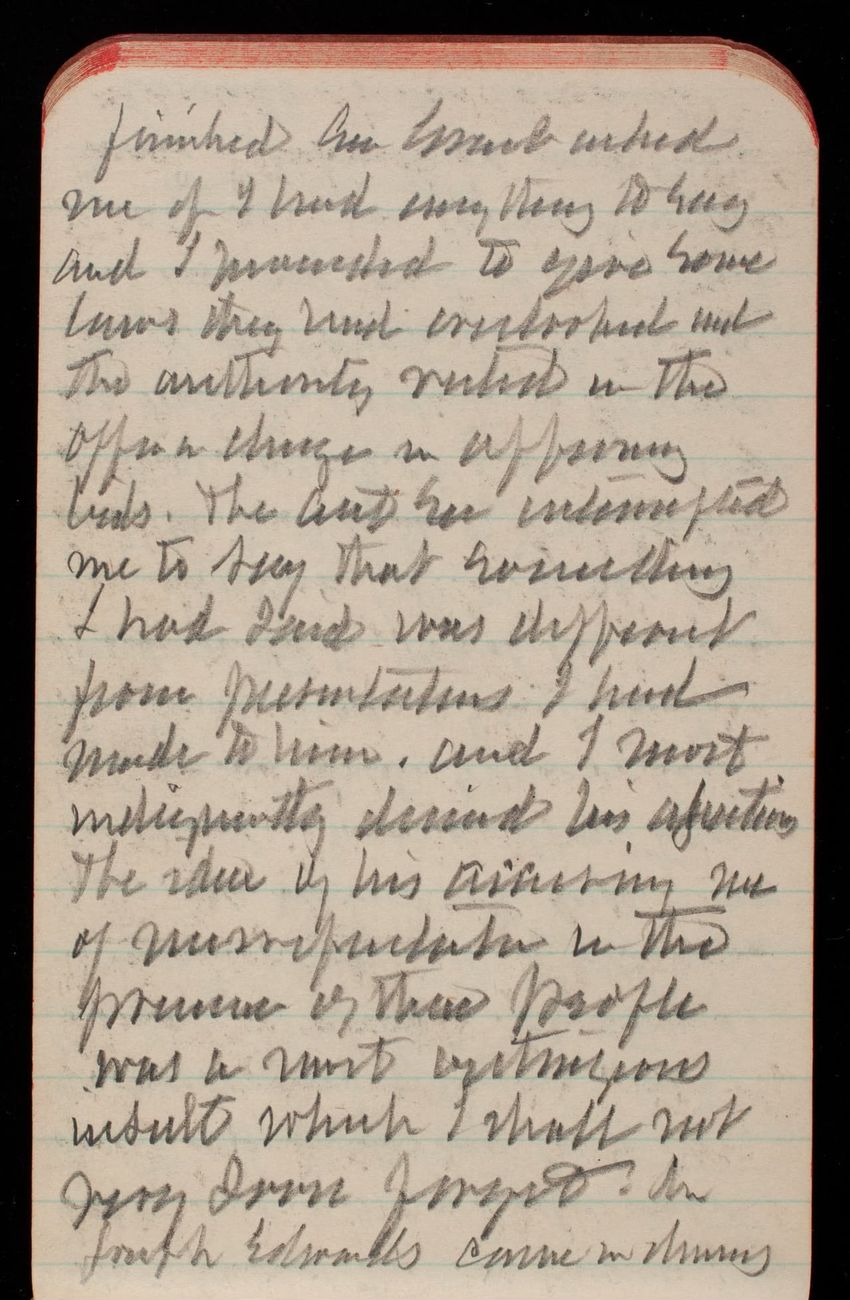 finished Gen Grant asked
me if I had anything to say
and I proceeded to give some
laws they had overlooked and
the authority vested in the
officer in charge in approving
bids. The act Sec interrupted
me to say that something
I had said was different
from presentations I had
made to him. and I most
indignantly denied his assertions
The idea of his accusing me
of misrepresentation in the
presence of these people
was a most outrageous
insult which I shall not
very soon forget.
Joseph Edwards came in during